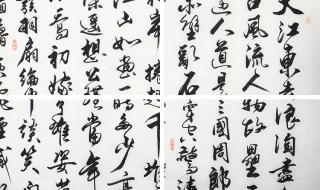 大江東去
浪淘盡
古風流人
物故壘西
人道是
三國周郎
赤壁亂石
穿空驚濤
岸捲起千堆
江山如畫一時多少豪
遙想公瑾當年
喬初嫁了雄姿英
羽扇綸巾談笑